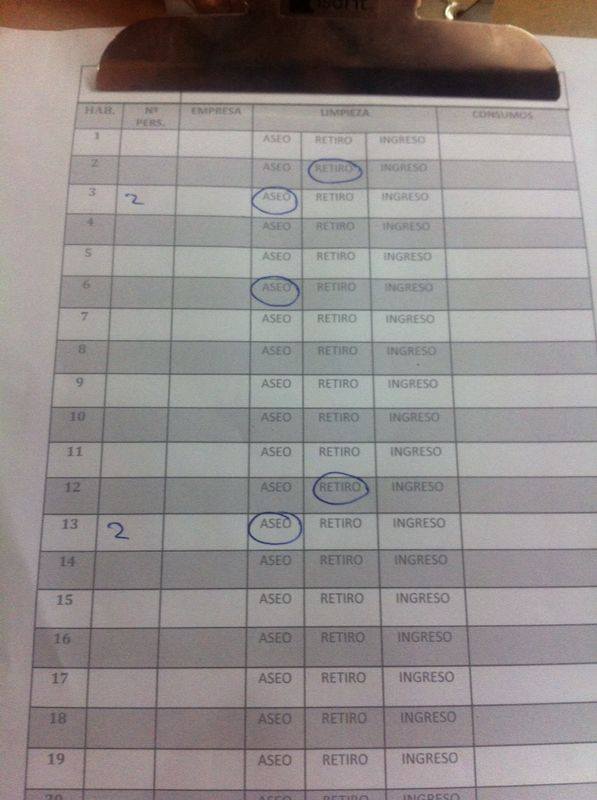 HAB. Nº PERS. EMPRESA LIMPIEZA CONSUMOS
1 ASEO RETIRO INGRESO
2 ASEO RETIRO INGRESO
3 2 ASEO RETIRO INGRESO
4 ASEO RETIRO INGRESO
5 ASEO RETIRO INGRESO
6 ASEO RETIRO INGRESO
7 ASEO RETIRO INGRESO
8 ASEO RETIRO INGRESO
9 ASEO RETIRO INGRESO
10 ASEO RETIRO INGRESO
11 ASEO RETIRO INGRESO
12 ASEO RETIRO INGRESO
13 2 ASEO RETIRO INGRESO
14 ASEO RETIRO INGRESO
15 ASEO RETIRO INGRESO
16 ASEO RETIRO INGRESO
17 ASEO RETIRO INGRESO
18 ASEO RETIRO INGRESO
19 ASEO RETIRO INGRESO
20 ASEO RETIRO INGRESO